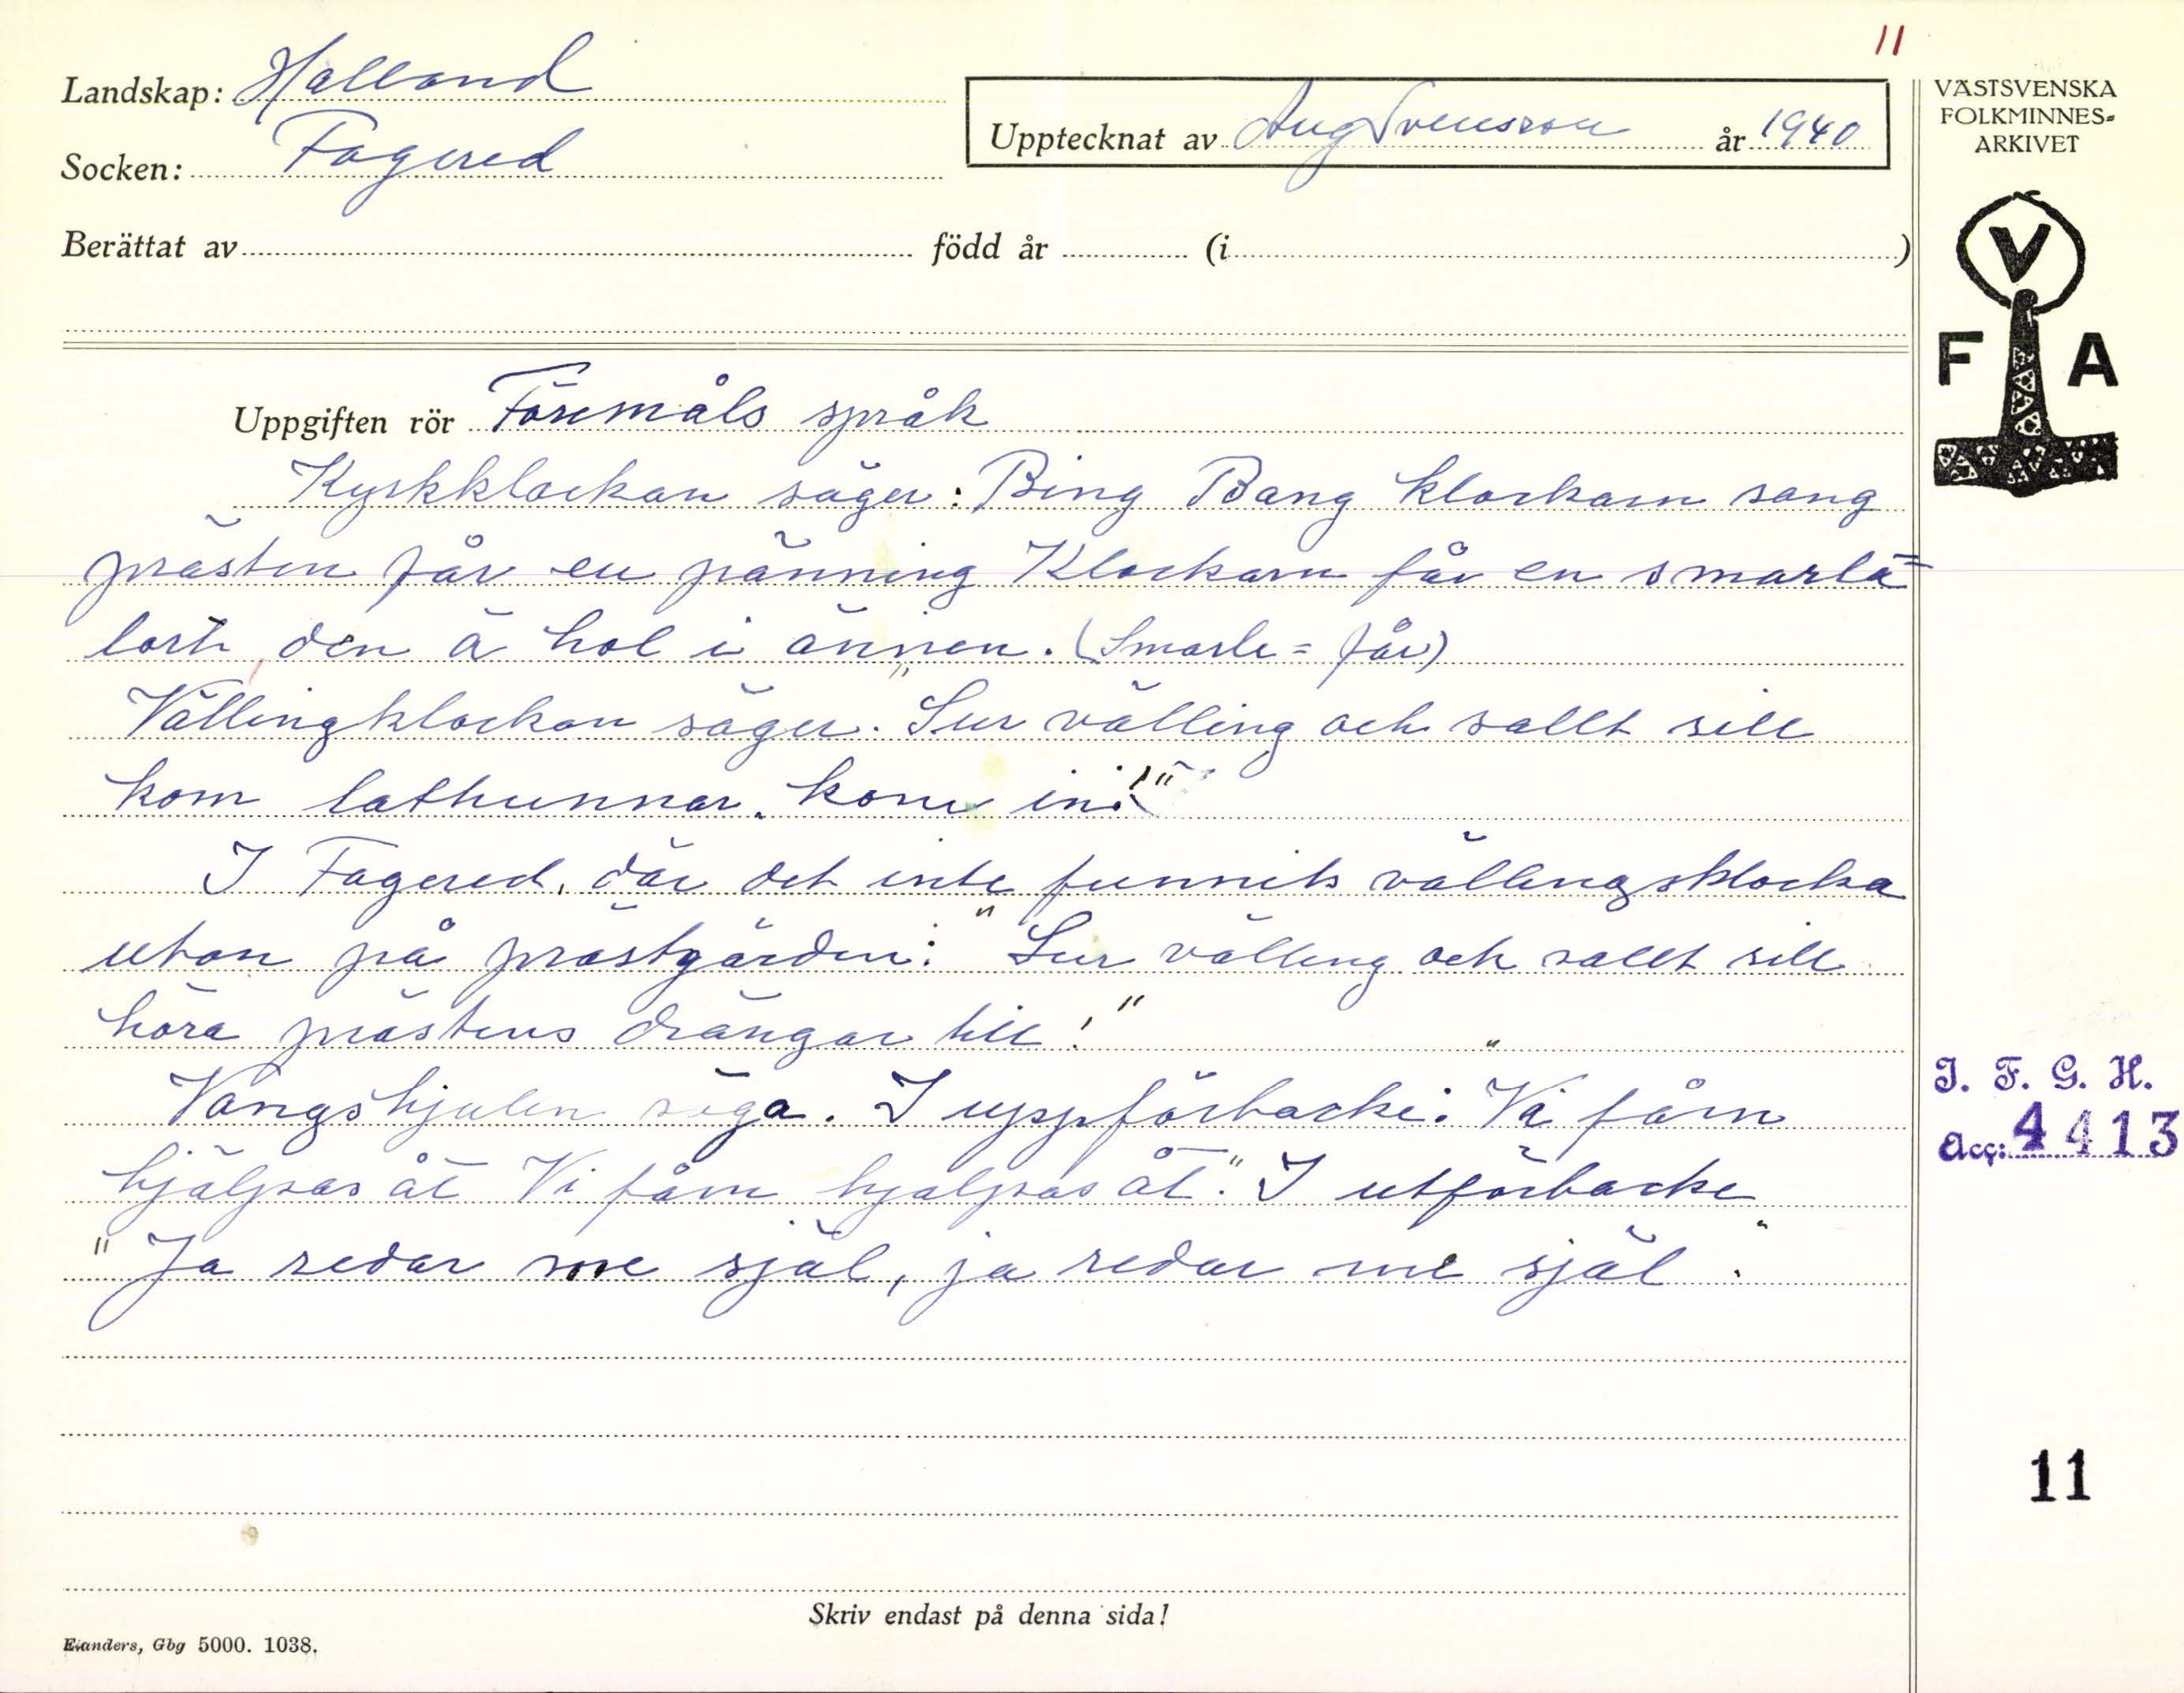 11
Landskap: Halland
Upptecknat av Aug Svensson år 1940
Socken: Fagered
Berättat av född år (i )
Uppgiften rör Föremåls språk
Kyrkklockan säger: Bing Bang klockarn sang
prästen får en pänning Klockarn får en smarla=
lort, den ä hol i ännen. (Smarle = får)
Vällingklockan säger. "Sur välling och sallt sill
kom lathunnar, kom in!"
I Fagered, där det inte funnits vällingsklocka
utan på prästgården: "Sur välling och sallt sill
höra prästens drängar till!"
Vangshjulen säga. I uppförbacke: "Vi fårn
hjälpas åt Vi fårn hjälpas åt." I utförbacke
"Ja redar me själ, ja redar me själ."
Skriv endast på denna sida!
Elanders, Gbg 5000. 1038.
VÄSTSVENSKA
FOLKMINNES=
ARKIVET
V
F A
I. F. G. H.
Acc: 4413
11